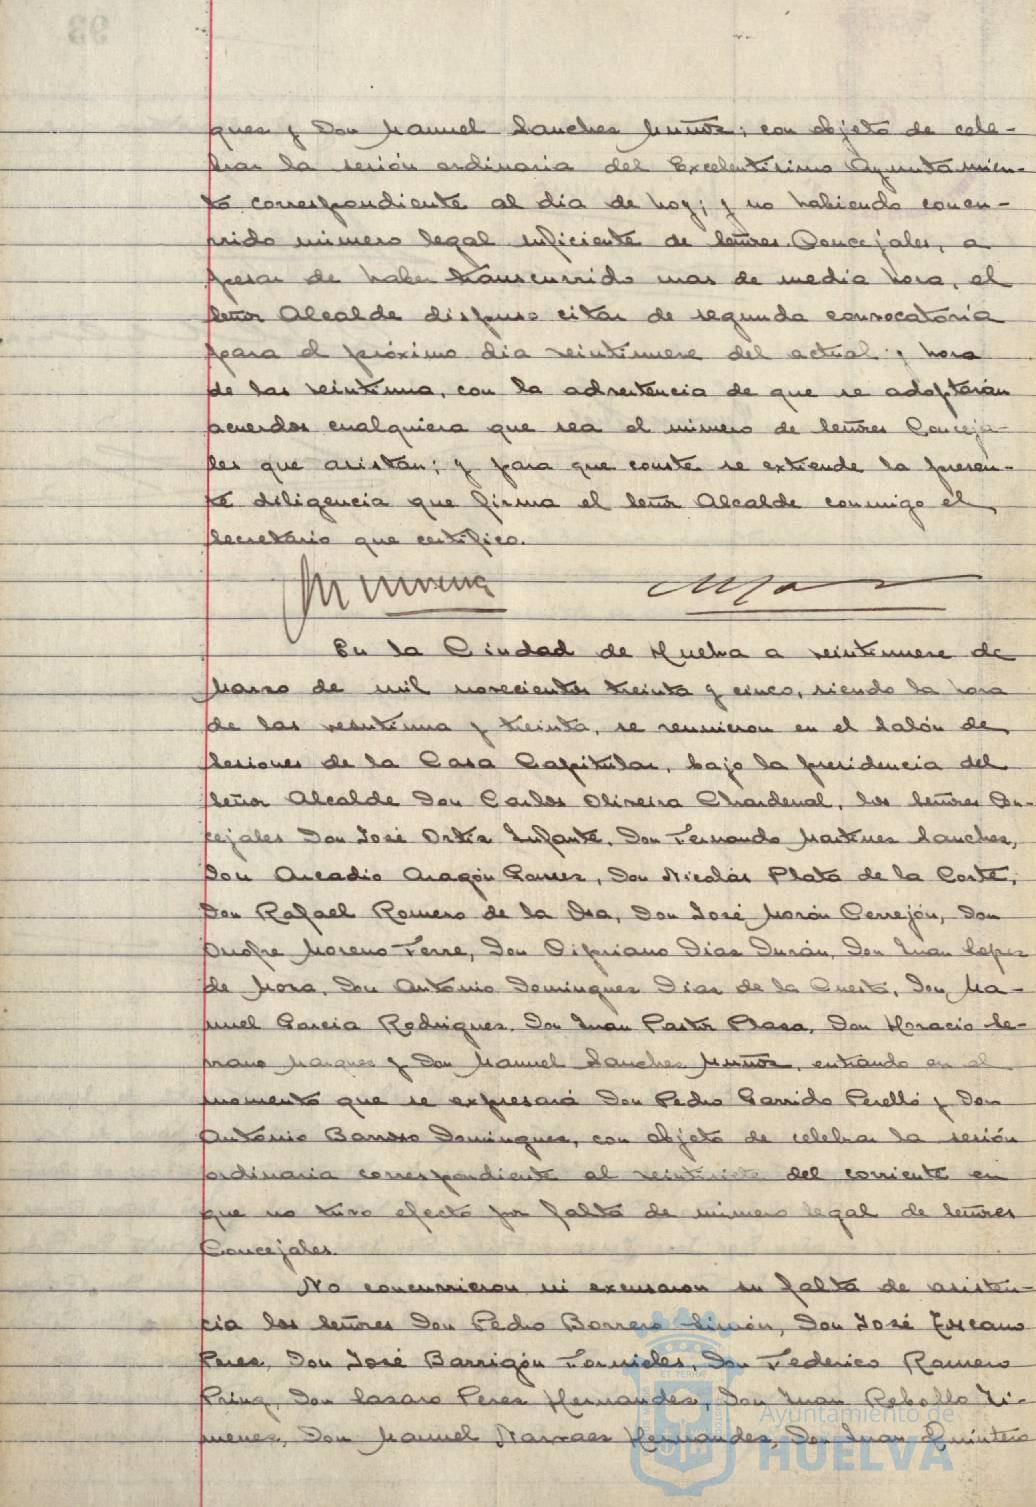 quez y Don Manuel Sanchez Muñoz; con objeto de cele-
brar la sesión ordinaria del Excelentisimo Ayuntamien-
to correspondiente al dia de hoy; y no habiendo concu-
rrido número legal suficiente de Señores Concejales, a
pesar de haber transcurrido mas de media hora, el
Señor Alcalde dispuso citar de segunda convocatoria
para el próximo dia veintinueve del actual y hora
de las veintiuna, con la advertencia de que se adoptarán
acuerdos cualquiera que sea el número de Señores Conceja-
les que asistan; y para que conste se extiende la presen-
te diligencia que firma el Señor Alcalde conmigo el
Secretario que certifico.
En la Ciudad de Huelva a veintinueve de
Marzo de mil novecientos treinta y cinco, siendo la hora
de las veintiuna y treinta, se reunieron en el Salón de
Sesiones de la Casa Capitular, bajo la presidencia del
Señor Alcalde Don Carlos Oliveira Chardenal, los Señores Con-
cejales Don José Ortiz Infante, Don Fernando Martinez Sanchez,
Don Arcadio Aragón Gomez, Don Nicolás Plata de la Corte,
Don Rafael Romero de la Osa, Don José Morón Cerrejón, Don
Onofre Moreno Terre, Don Cipriano Diaz Durán, Don Juan Lopez
de Mora, Don Antonio Dominguez Diaz de la Cuesta, Don Ma-
nuel Garcia Rodriguez, Don Juan Pastor Plaza, Don Horacio Se-
rrano Marquez y Don Manuel Sanchez Muñoz, entrando en el
momento que se expresará Don Pedro Garrido Perelló y Don
Antonio Barroso Dominguez, con objeto de celebrar la sesión
ordinaria correspondiente al veintisiete del corriente en
que no tuvo efecto por falta de número legal de Señores
Concejales.
No concurrieron ni excusaron su falta de asisten-
cia los Señores Don Pedro Borrero Limón, Don José Toscano
Perez, Don José Barrigón Fornieles, Don Federico Romero
Pring, Don Lazaro Perez Hernandez, Don Juan Rebollo Ji-
menez, Don Manuel Narvaez Hernandez, Don Juan Quintero
Ayuntamiento de
HUELVA